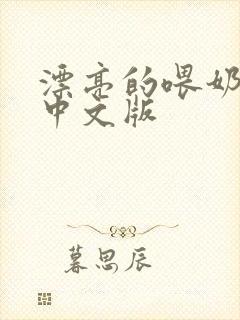 漂亮的喂奶
中文版
暮思辰